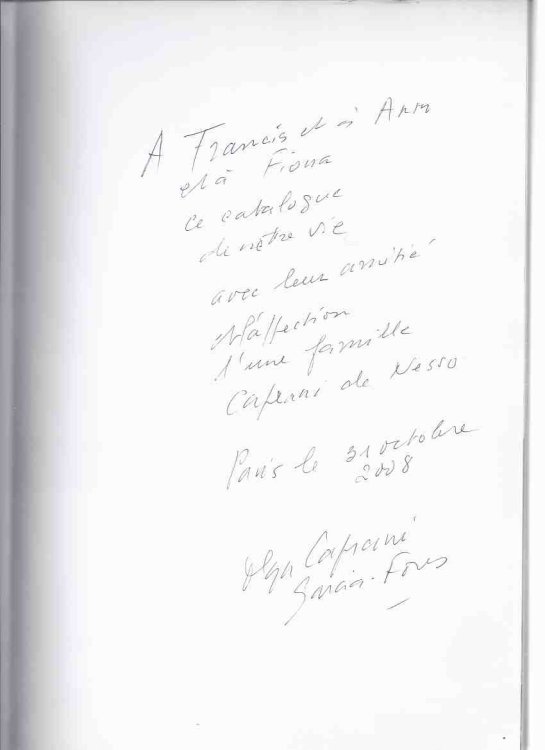 A Francis et à Ann
et à Fiona
ce catalogue
de notre vie
avec leur amitié
et l'affection
d'une famille
Caprani de Nesso
Paris le 31 octobre
2008
Olga Caprani
Garcia-Fons